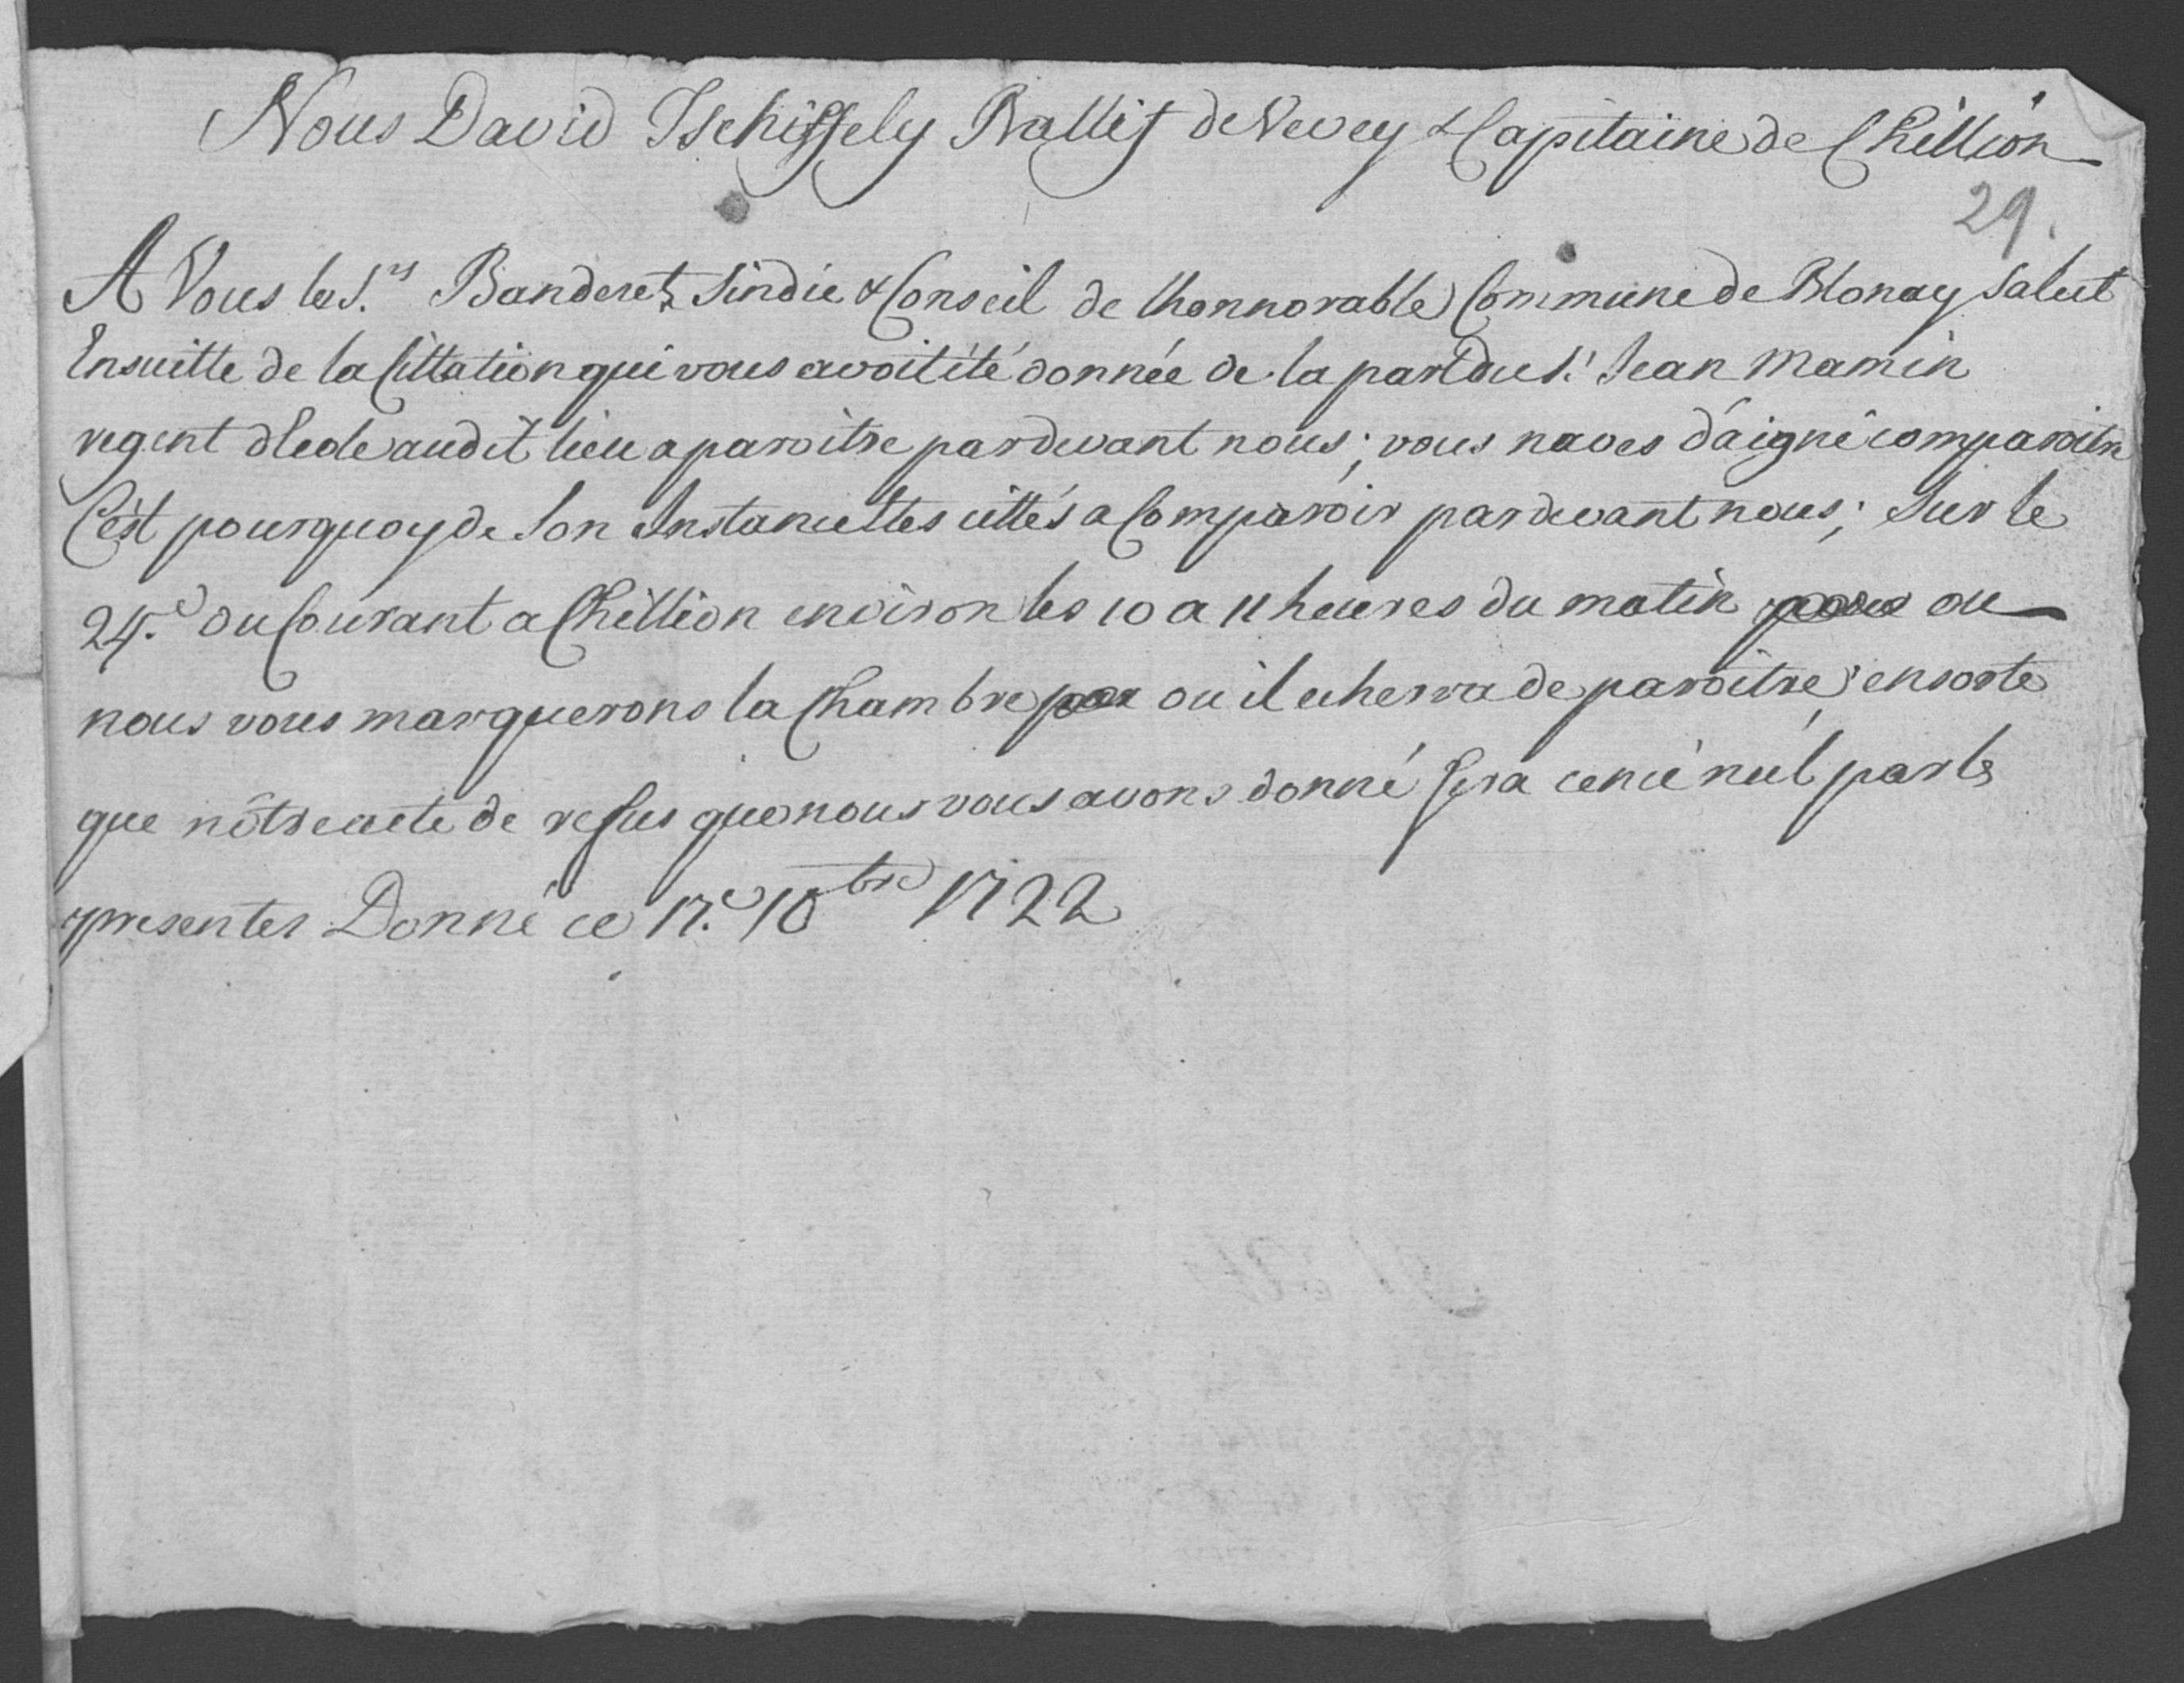 Nous David Tschiffely Ballif de Vevey & Capitaine de Chillion
29.
A Vous les S.rs Banderet, Sindic & Conseil de lhonnorable Commune de Blonay Salut
Ensuitte de la Cittation qui vous avoit été donnée de la part du S.r Jean Mamin
regent dEcole audit lieu a paroitre pardevant nous; vous naves daigné comparoitre
C'est pourquoy de Son Instance Etes cittés a Comparoir pardevant nous; Sur le
24.e du Courant a Chillion environ les 10 a 11 heures du matin ou
nous vous marquerons la Chambre ou il echerra de paroitre, ensorte
que nôtre acte de refus que nous vous avons donné sera nul par les
presentes Donné ce 17.e 10bre 1722